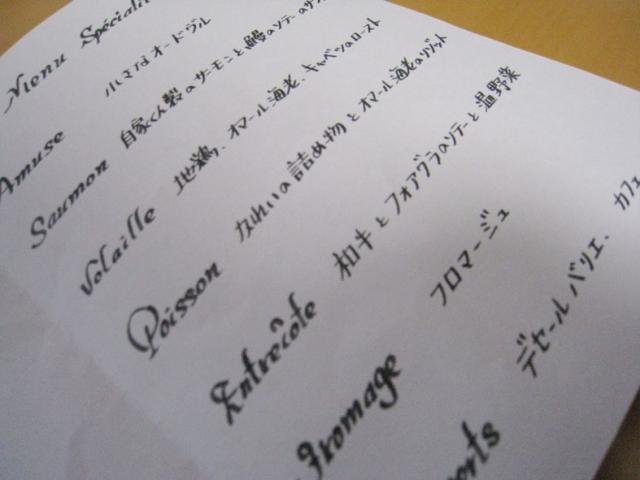 Menu Spéciali
Amuse 小さなオードブル
Saumon 自家くん製のサーモンと鯛のソテーのサ
Volaille 地鶏、オマール海老、キャベツのロースト
Poisson かれいの詰め物とオマール海老のリゾット
Entrecôte 和牛とフォアグラのソテーと温野菜
Fromage フロマージュ
orts デセールバリエ、カフェ